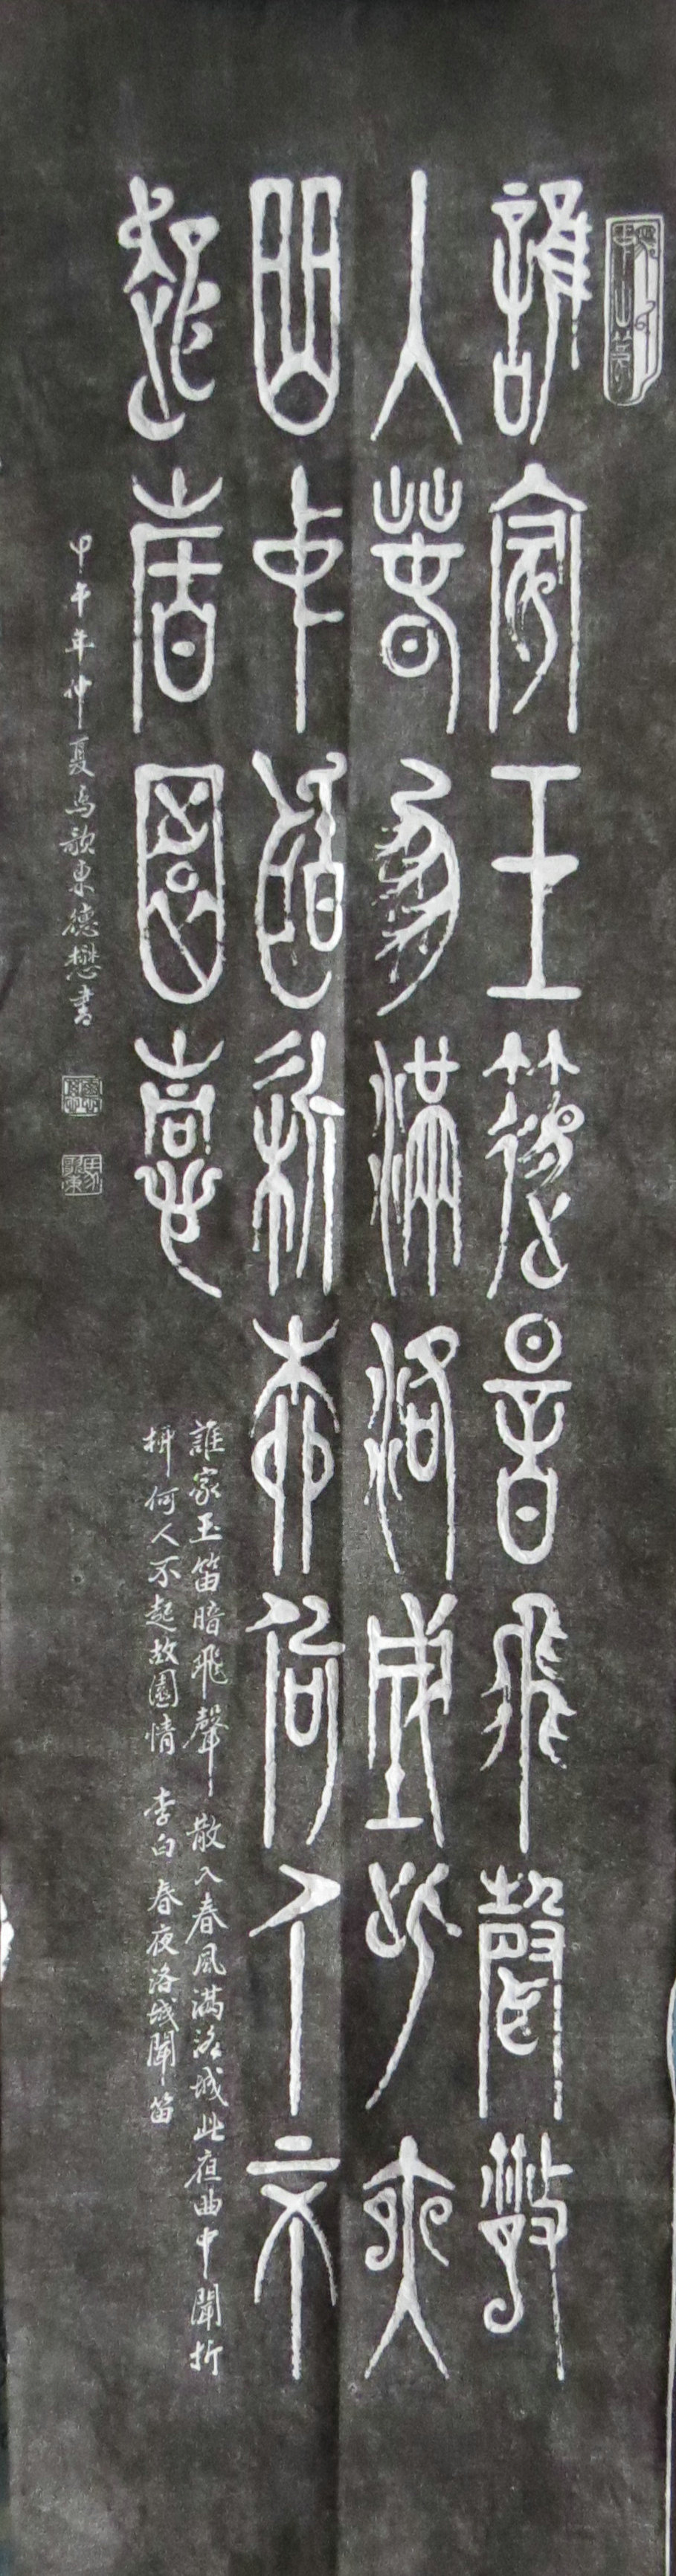 誰家玉笛暗飛聲散
入春風滿洛城此夜
曲中聞折柳何人不
起故園情
誰家玉笛暗飛聲散入春風滿洛城此夜曲中聞折
柳何人不起故園情 李白春夜洛城聞笛
甲午年仲夏馬歌東德懋書